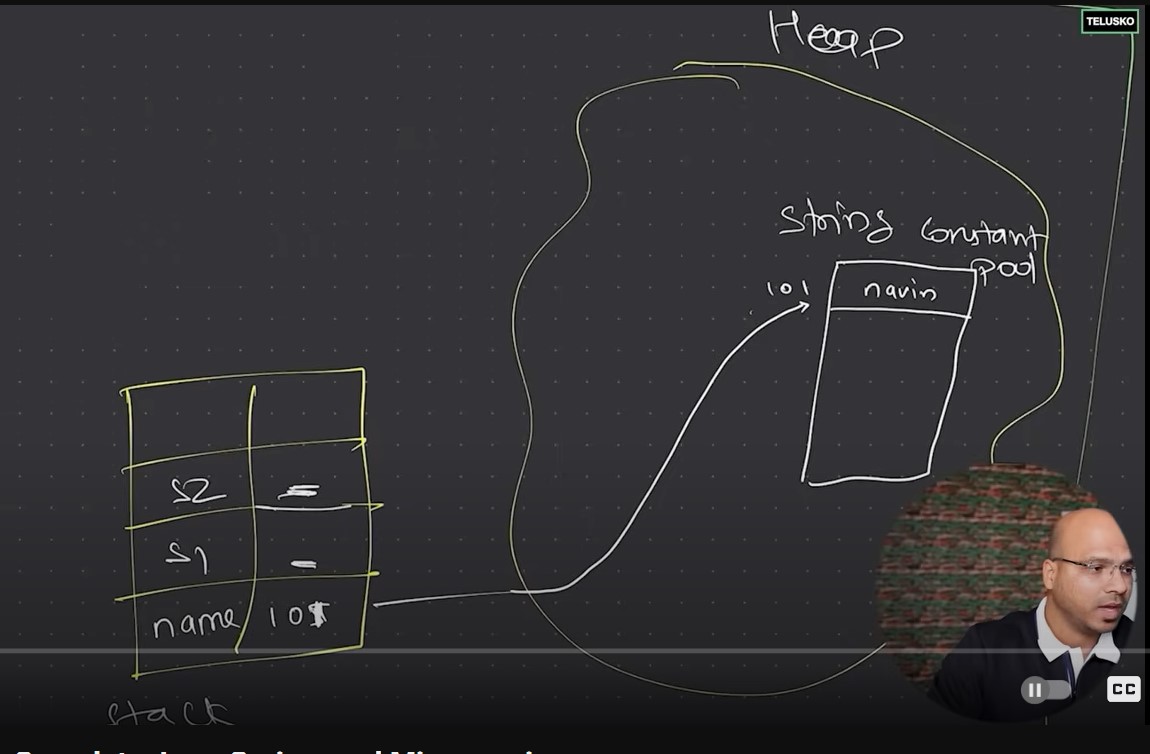 TELUSKO
Heap
String Constant
pool
101 navin
S2 =
S1 -
name 101
Stack
CC